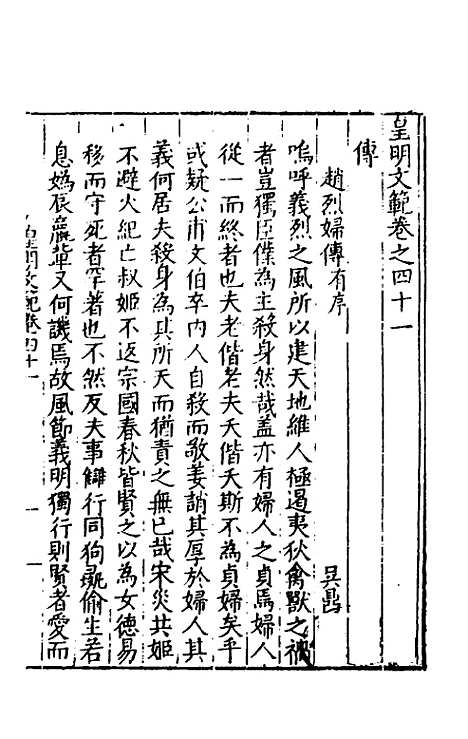 皇明文範卷之四十一
傳
趙烈婦傳有序
吳鼎
嗚呼義烈之風所以建天地維人極遏夷狄禽獸之禍
者豈獨臣僕為主殺身然哉盖亦有婦人之貞焉婦人
從一而終者也夫老偕老夫夭偕夭斯不為貞婦矣乎
或疑公甫文伯卒内人自殺而敬姜誚其厚於婦人其
義何居夫殺身為其所天而猶責之無已哉宋災共姬
不避火紀亡叔姬不返宗國春秋皆賢之以為女德易
移而守死者罕著也不然反夫事讎行同狗彘偷生若
息媯辰嬴輩又何譏焉故風節義明獨行則賢者愛而
皇明文範卷四十一
一